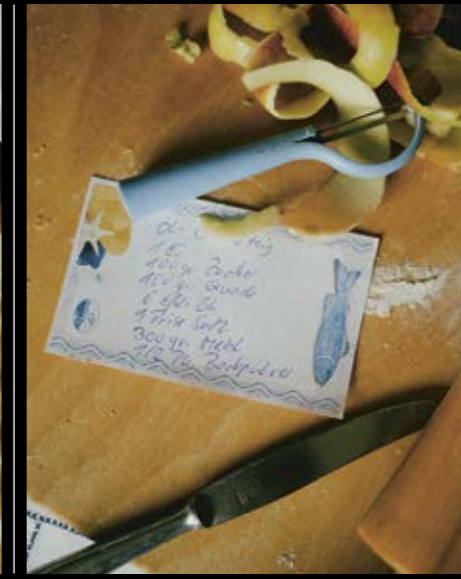 1 Ei
100 gr. Zucker
150 g. Quark
6 Eßl. Öl
1 Prise Salz
300 gr. Mehl
Backpulver